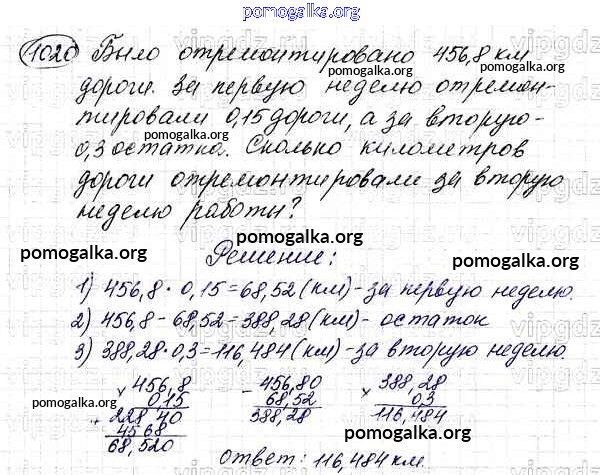 pomogalka.org
1020 Было отремонтировано 456,8 км
дороги. За первую неделю отремон-
тировали 0,15 дороги, а за вторую -
0,3 остатка. Сколько километров
дороги отремонтировали за вторую
неделю работы?
Решение:
1) 456,8 · 0,15 = 68,52 (км) - за первую неделю.
2) 456,8 - 68,52 = 388,28 (км) - остаток
3) 388,28 · 0,3 = 116,484 (км) - за вторую неделю.
× 456,8 - 456,80 × 388,28
0,15 68,52 0,3
+ 228 40 388,28 116,484
456 8
68,520
Ответ: 116,484 км.
pomogalka.org
pomogalka.org
pomogalka.org
pomogalka.org
pomogalka.org
pomogalka.org
pomogalka.org
pomogalka.org
pomogalka.org
pomogalka.org
pomogalka.org